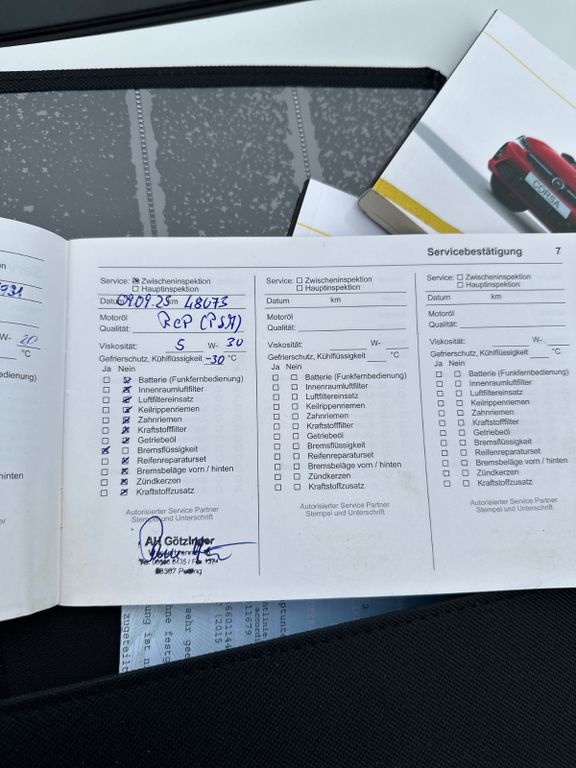 Servicebestätigung 7
W- 20
°C
Service: ☒ Zwischeninspektion
☐ Hauptinspektion
Datum 09.09.25 km 48073
Motoröl
Qualität: RCP (PSA)
Viskosität: 5 W- 30
Gefrierschutz, Kühlflüssigkeit -30 °C
Ja Nein
☐ ☒ Batterie (Funkfernbedienung)
☐ ☒ Innenraumluftfilter
☐ ☒ Luftfiltereinsatz
☐ ☒ Keilrippenriemen
☐ ☒ Zahnriemen
☐ ☒ Kraftstofffilter
☐ ☒ Getriebeöl
☒ ☐ Bremsflüssigkeit
☐ ☒ Reifenreparaturset
☐ ☒ Bremsbeläge vorn / hinten
☐ ☒ Zündkerzen
☐ ☒ Kraftstoffzusatz
Autorisierter Service Partner
Stempel und Unterschrift
AH Götzinger
Service: ☐ Zwischeninspektion
☐ Hauptinspektion
Datum km
Motoröl
Qualität:
Viskosität: W-
Gefrierschutz, Kühlflüssigkeit °C
Ja Nein
☐ ☐ Batterie (Funkfernbedienung)
☐ ☐ Innenraumluftfilter
☐ ☐ Luftfiltereinsatz
☐ ☐ Keilrippenriemen
☐ ☐ Zahnriemen
☐ ☐ Kraftstofffilter
☐ ☐ Getriebeöl
☐ ☐ Bremsflüssigkeit
☐ ☐ Reifenreparaturset
☐ ☐ Bremsbeläge vorn / hinten
☐ ☐ Zündkerzen
☐ ☐ Kraftstoffzusatz
Autorisierter Service Partner
Stempel und Unterschrift
Service: ☐ Zwischeninspektion
☐ Hauptinspektion
Datum km
Motoröl
Qualität:
Viskosität: W-
Gefrierschutz, Kühlflüssigkeit °C
Ja Nein
☐ ☐ Batterie (Funkfernbedienung)
☐ ☐ Innenraumluftfilter
☐ ☐ Luftfiltereinsatz
☐ ☐ Keilrippenriemen
☐ ☐ Zahnriemen
☐ ☐ Kraftstofffilter
☐ ☐ Getriebeöl
☐ ☐ Bremsflüssigkeit
☐ ☐ Reifenreparaturset
☐ ☐ Bremsbeläge vorn / hinten
☐ ☐ Zündkerzen
☐ ☐ Kraftstoffzusatz
Autorisierter Service Partner
Stempel und Unterschrift
CORSA